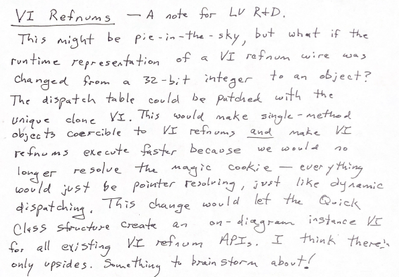 VI Refnums — A note for LV R+D.
This might be pie-in-the-sky, but what if the
runtime representation of a VI refnum wire was
changed from a 32-bit integer to an object?
The dispatch table could be patched with the
unique clone VI. This would make single-method
objects coercible to VI refnums and make VI
refnums execute faster because we would no
longer resolve the magic cookie — everything
would just be pointer resolving, just like dynamic
dispatching. This change would let the Quick
Class structure create an on-diagram instance VI
for all existing VI refnum APIs. I think there's
only upsides. Something to brainstorm about!